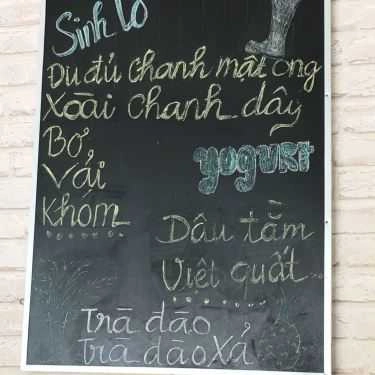 Sinh tố
Đu đủ chanh mật ong
Xoài chanh dây
Bơ
Vải
Khóm
yogurt
Dâu tằm
Việt quất...
Trà đào
Trà đào xả